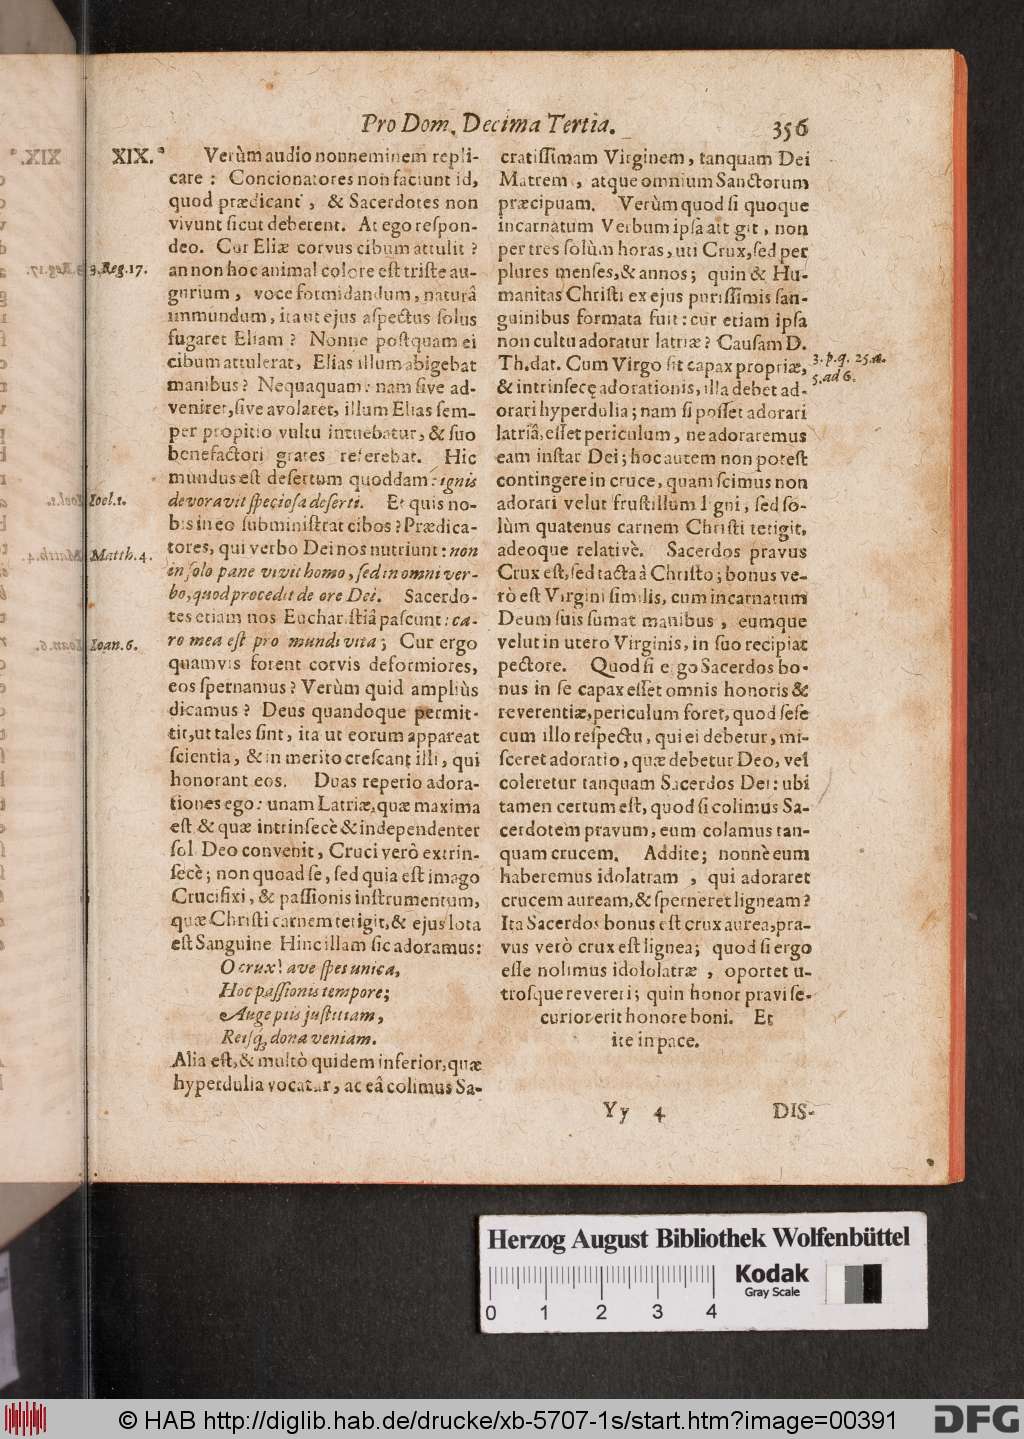 Pro Dom. Decima Tertia.
356
XIX.
Verùm audio nonneminem repli-
care : Concionatores non faciunt id,
quod prædicant , & Sacerdotes non
vivunt sicut deberent. At ego respon-
deo. Cur Eliæ corvus cibum attulit ?
3. Reg. 17.
an non hoc animal colore est triste au-
gurium , voce formidandum, naturâ
immundum, ita ut ejus aspectus solus
fugaret Eliam ? Nonne postquam ei
cibum attulerat, Elias illum abigebat
manibus? Nequaquam: nam sive ad-
veniret, sive avolaret, illum Elias sem-
per propitio vultu intuebatur, & suo
benefactori grates referebat. Hic
mundus est desertum quoddam: ignis
Ioel. 1.
devoravit speciosa deserti. Et quis no-
bis in eo subministrat cibos? Prædica-
Matth. 4.
tores, qui verbo Dei nos nutriunt: non
in solo pane vivit homo, sed in omni ver-
bo, quod procedit de ore Dei. Sacerdo-
tes etiam nos Eucharistiâ pascunt: ca-
Ioan. 6.
ro mea est pro mundi vita; Cur ergo
quamvis forent corvis deformiores,
eos spernamus? Verùm quid ampliùs
dicamus? Deus quandoque permit-
tit, ut tales sint, ita ut eorum appareat
scientia, & in merito crescant illi, qui
honorant eos. Duas reperio adora-
tiones ego: unam Latriæ, quæ maxima
est & quæ intrinsecè & independenter
soli Deo convenit, Cruci verò extrin-
secè; non quoad se, sed quia est imago
Crucifixi, & passionis instrumentum,
quæ Christi carnem tetigit, & ejus lota
est Sanguine Hinc illam sic adoramus:
O crux! ave spes unica,
Hoc passionis tempore;
Auge piis justitiam,
Reisq; dona veniam.
Alia est, & multò quidem inferior, quæ
hyperdulia vocatur, ac eâ colimus Sa-
cratissimam Virginem, tanquam Dei
Matrem , atque omnium Sanctorum
præcipuam. Verùm quod si quoque
incarnatum Verbum ipsa attigit, non
per tres solùm horas, uti Crux, sed per
plures menses, & annos; quin & Hu-
manitas Christi ex ejus purissimis san-
guinibus formata fuit: cur etiam ipsa
non cultu adoratur latriæ? Causam D.
Th. dat. Cum Virgo sit capax propriæ,
3. p. q. 25. a.
5. ad 6.
& intrinsecę adorationis, illa debet ad-
orari hyperdulia; nam si posset adorari
latriâ, esset periculum, ne adoraremus
eam instar Dei; hoc autem non potest
contingere in cruce, quam scimus non
adorari velut frustillum ligni, sed so-
lùm quatenus carnem Christi tetigit,
adeoque relativè. Sacerdos pravus
Crux est, sed tacta à Christo; bonus ve-
rò est Virgini similis, cum incarnatum
Deum suis sumat manibus , eumque
velut in utero Virginis, in suo recipiat
pectore. Quod si ergo Sacerdos bo-
nus in se capax esset omnis honoris &
reverentiæ, periculum foret, quod sese
cum illo respectu, qui ei debetur, mi-
sceret adoratio, quæ debetur Deo, vel
coleretur tanquam Sacerdos Dei: ubi
tamen certum est, quod si colimus Sa-
cerdotem pravum, eum colamus tan-
quam crucem. Addite; nonnè eum
haberemus idolatram , qui adoraret
crucem auream, & sperneret ligneam?
Ita Sacerdos bonus est crux aurea, pra-
vus verò crux est lignea; quod si ergo
esse nolimus idololatræ , oportet u-
trosque revereri; quin honor pravi se-
curior erit honore boni. Et
ite in pace.
Yy 4
DIS-
Herzog August Bibliothek Wolfenbüttel
Kodak
Gray Scale
0 1 2 3 4
© HAB http://diglib.hab.de/drucke/xb-5707-1s/start.htm?image=00391
DFG